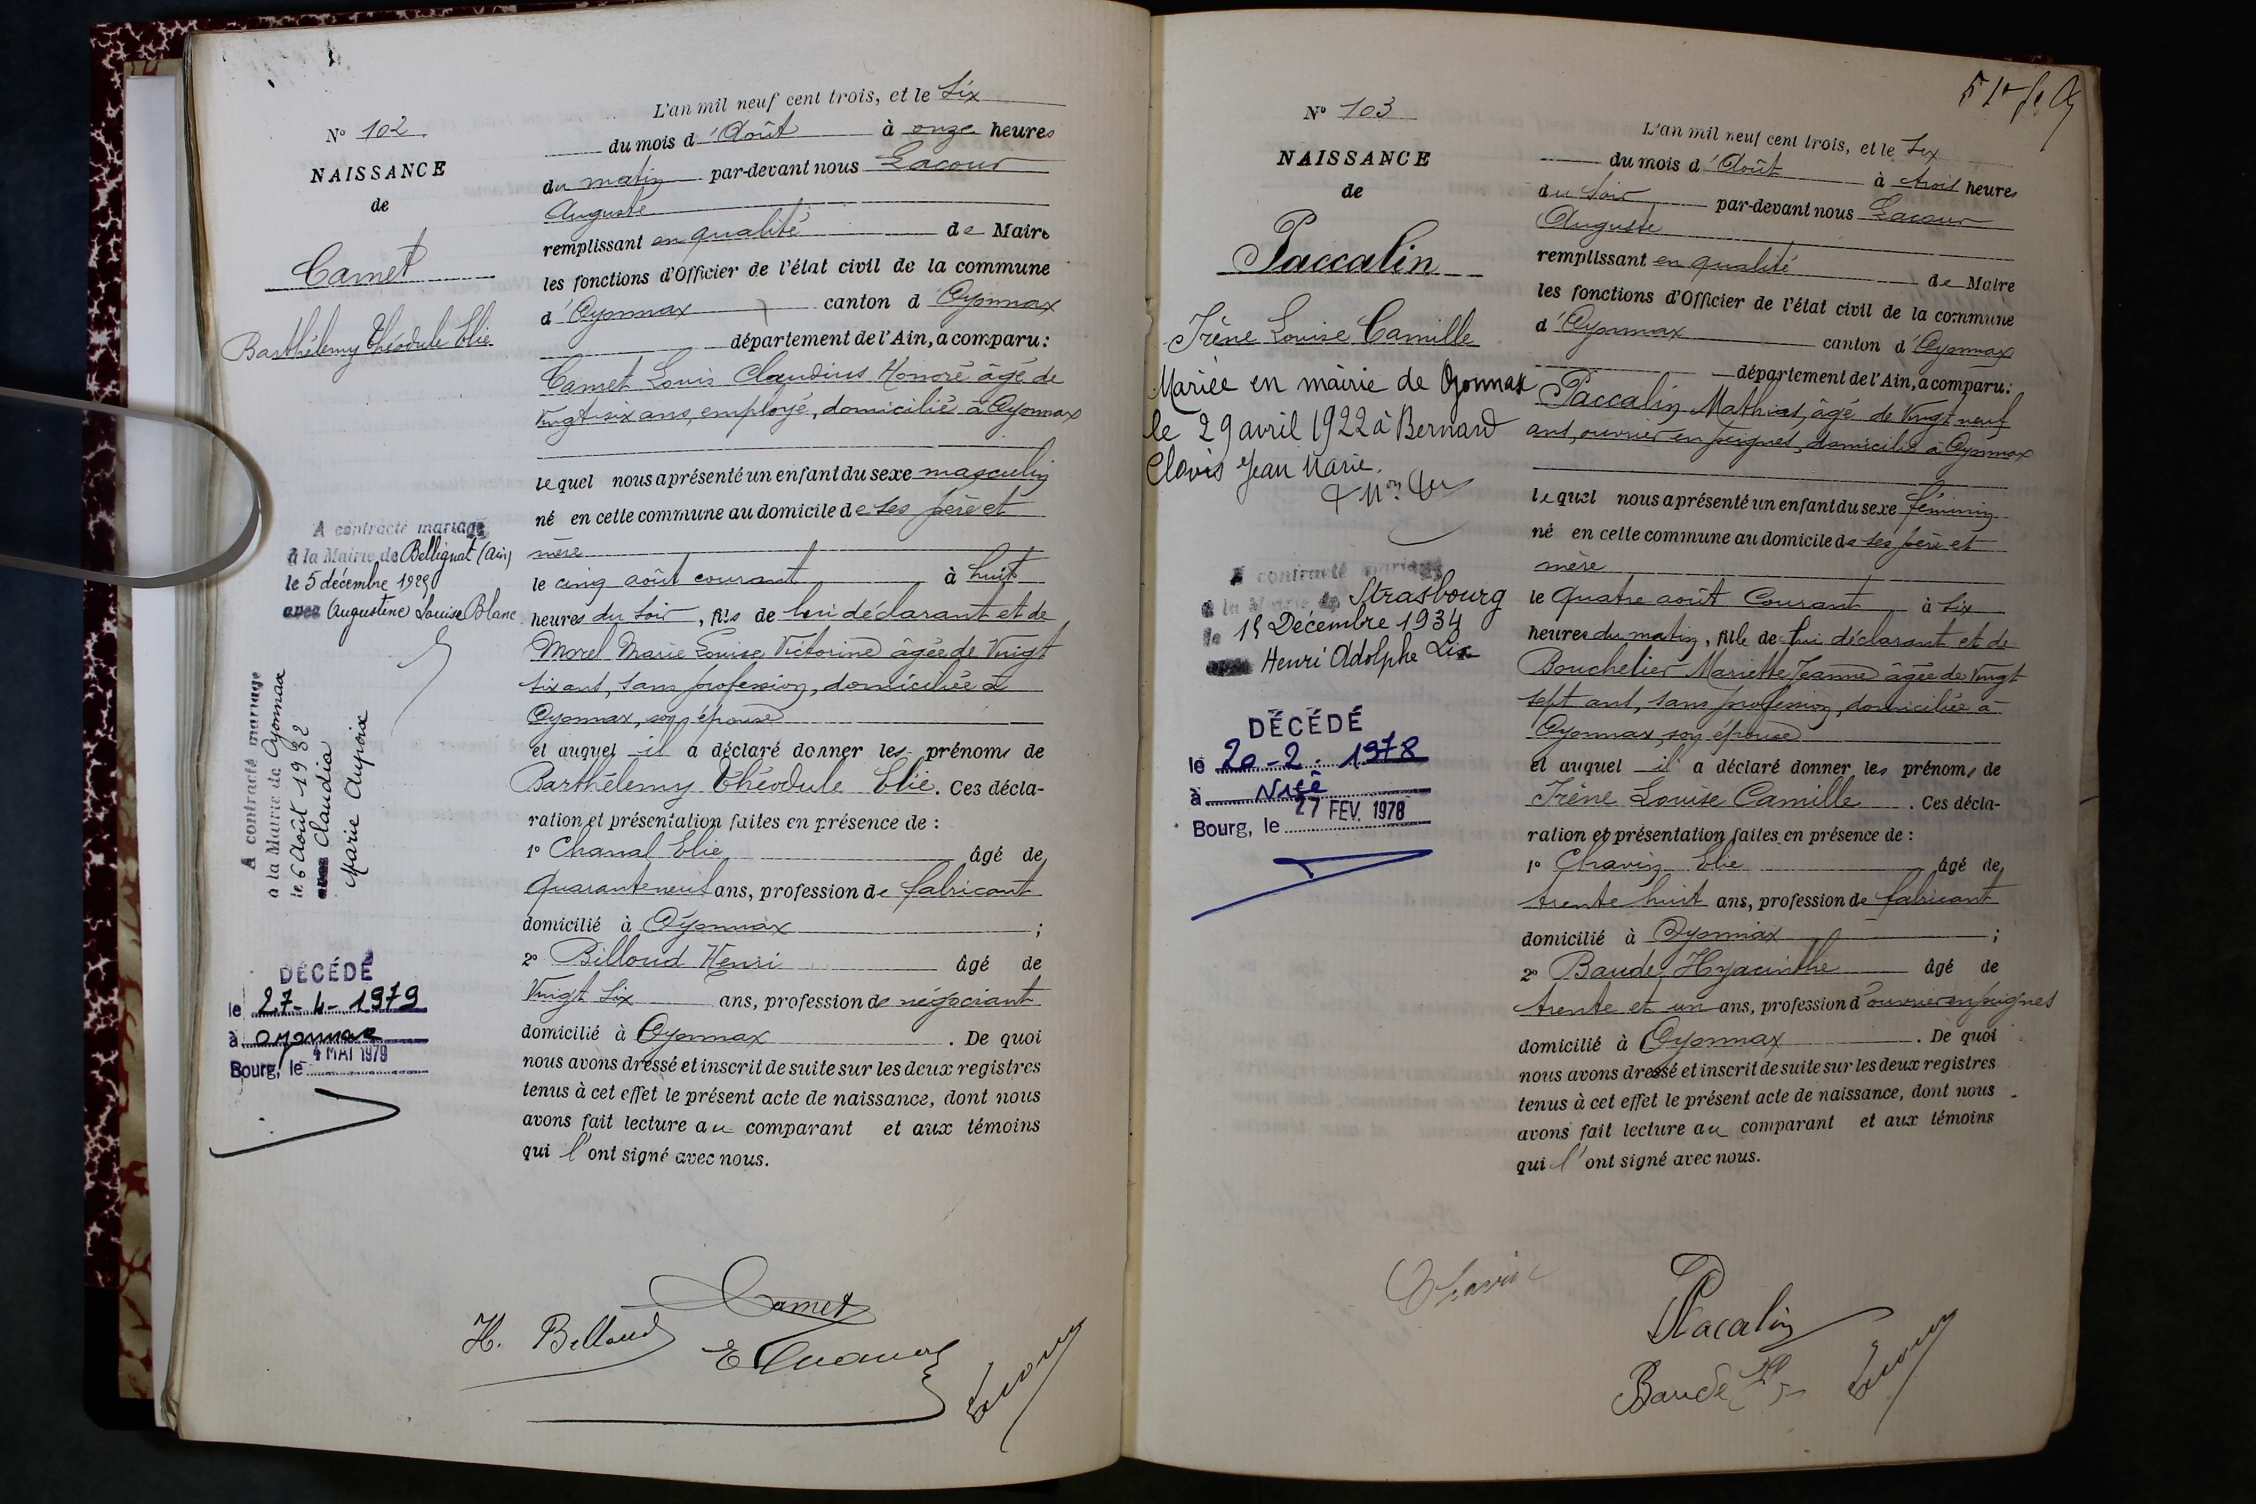 N° 102
NAISSANCE
de
Camet
Barthélemy Théodule Elie
A contracté mariage
à la Mairie de Bellignat (Ain)
le 5 décembre 1929
avec Augustine Louise Blanc
A contracté mariage
à la Mairie de Oyonnax
le 6 Août 1932
avec Claudia
Marie
DÉCÉDÉ
le 27-4-1979
à oyonnax
4 MAI 1979
Bourg, le
L'an mil neuf cent trois, et le six
du mois d'Août à onze heures
du matin par-devant nous Lacour
Auguste
remplissant en qualité de Maire
les fonctions d'Officier de l'état civil de la commune
d'Oyonnax canton d'Oyonnax
département de l'Ain, a comparu :
Camet Louis Claudius Honoré âgé de
vingt-six ans, employé, domicilié à Oyonnax
lequel nous a présenté un enfant du sexe masculin
né en cette commune au domicile de ses père et
mère
le cinq août courant à huit
heures du soir, fils de lui déclarant et de
Morel Marie Louise Victorine âgée de Vingt
six ans, sans profession, domiciliée à
Oyonnax, son épouse
et auquel il a déclaré donner les prénoms de
Barthélemy Théodule Elie. Ces décla-
ration et présentation faites en présence de :
1° Chanal Elie âgé de
quarante neuf ans, profession de fabricant
domicilié à Oyonnax ;
2° Billoud Henri âgé de
Vingt six ans, profession de négociant
domicilié à Oyonnax . De quoi
nous avons dressé et inscrit de suite sur les deux registres
tenus à cet effet le présent acte de naissance, dont nous
avons fait lecture au comparant et aux témoins
qui l'ont signé avec nous.
Camet
H. Billoud
E Chanal
Lacour
N° 103
NAISSANCE
de
Paccalin
Irène Louise Camille
Mariée en mairie de Oyonnax
le 29 avril 1922 à Bernard
Clovis Jean Marie.
A contracté mariage
à la Mairie de Strasbourg
le 15 Décembre 1934
avec Henri Adolphe Lix
DÉCÉDÉ
le 20-2-1978
à Nice
27 FEV. 1978
Bourg, le
L'an mil neuf cent trois, et le six
du mois d'Août à trois heures
du soir par-devant nous Lacour
Auguste
remplissant en qualité de Maire
les fonctions d'Officier de l'état civil de la commune
d'Oyonnax canton d'Oyonnax
département de l'Ain, a comparu :
Paccalin Mathias, âgé de vingt neuf
ans, ouvrier en peignes, domicilié à Oyonnax
lequel nous a présenté un enfant du sexe féminin
né en cette commune au domicile de ses père et
mère
le quatre août courant à six
heures du matin, fille de lui déclarant et de
Bouchelier Mariette Jeanne âgée de vingt
sept ans, sans profession, domiciliée à
Oyonnax, son épouse
et auquel il a déclaré donner les prénoms de
Irène Louise Camille . Ces décla-
ration et présentation faites en présence de :
1° Chavin Elie âgé de
trente huit ans, profession de fabricant
domicilié à Oyonnax ;
2° Baude Hyacinthe âgé de
trente et un ans, profession d'ouvrier en peignes
domicilié à Oyonnax . De quoi
nous avons dressé et inscrit de suite sur les deux registres
tenus à cet effet le présent acte de naissance, dont nous
avons fait lecture au comparant et aux témoins
qui l'ont signé avec nous.
Chavin
Pacalin
Baude
Lacour